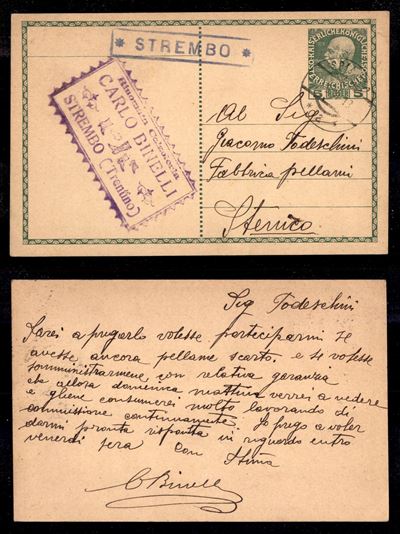 * STREMBO *
CARLO BINELLI
STREMBO (Trentino)
KAISERLICHEKÖNIGLICHE
ÖSTERREICHISCHE
5 5
Al Sig
Giacomo Todeschini
Fabbrica pellami
Stenico
Sig Todeschini
Sarei a pregarlo volesse parteciparmi se
avesse ancora pellame scarto. e se volesse
somministrarmene con relativa garanzia
che allora domenica mattina verrei a vedere
e gliene consumerei molto lavorando di
commissione continuamente. Lo prego a voler
darmi pronta risposta in riguardo entro
venerdi sera con stima
C Binelli